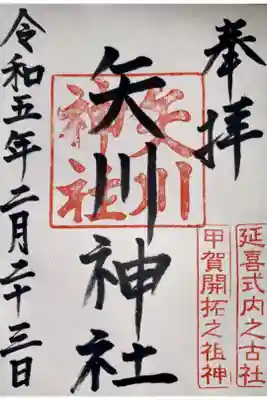 奉拝
延喜式内之古社
甲賀開拓之祖神
矢川神社
矢川神社
令和五年二月二十三日